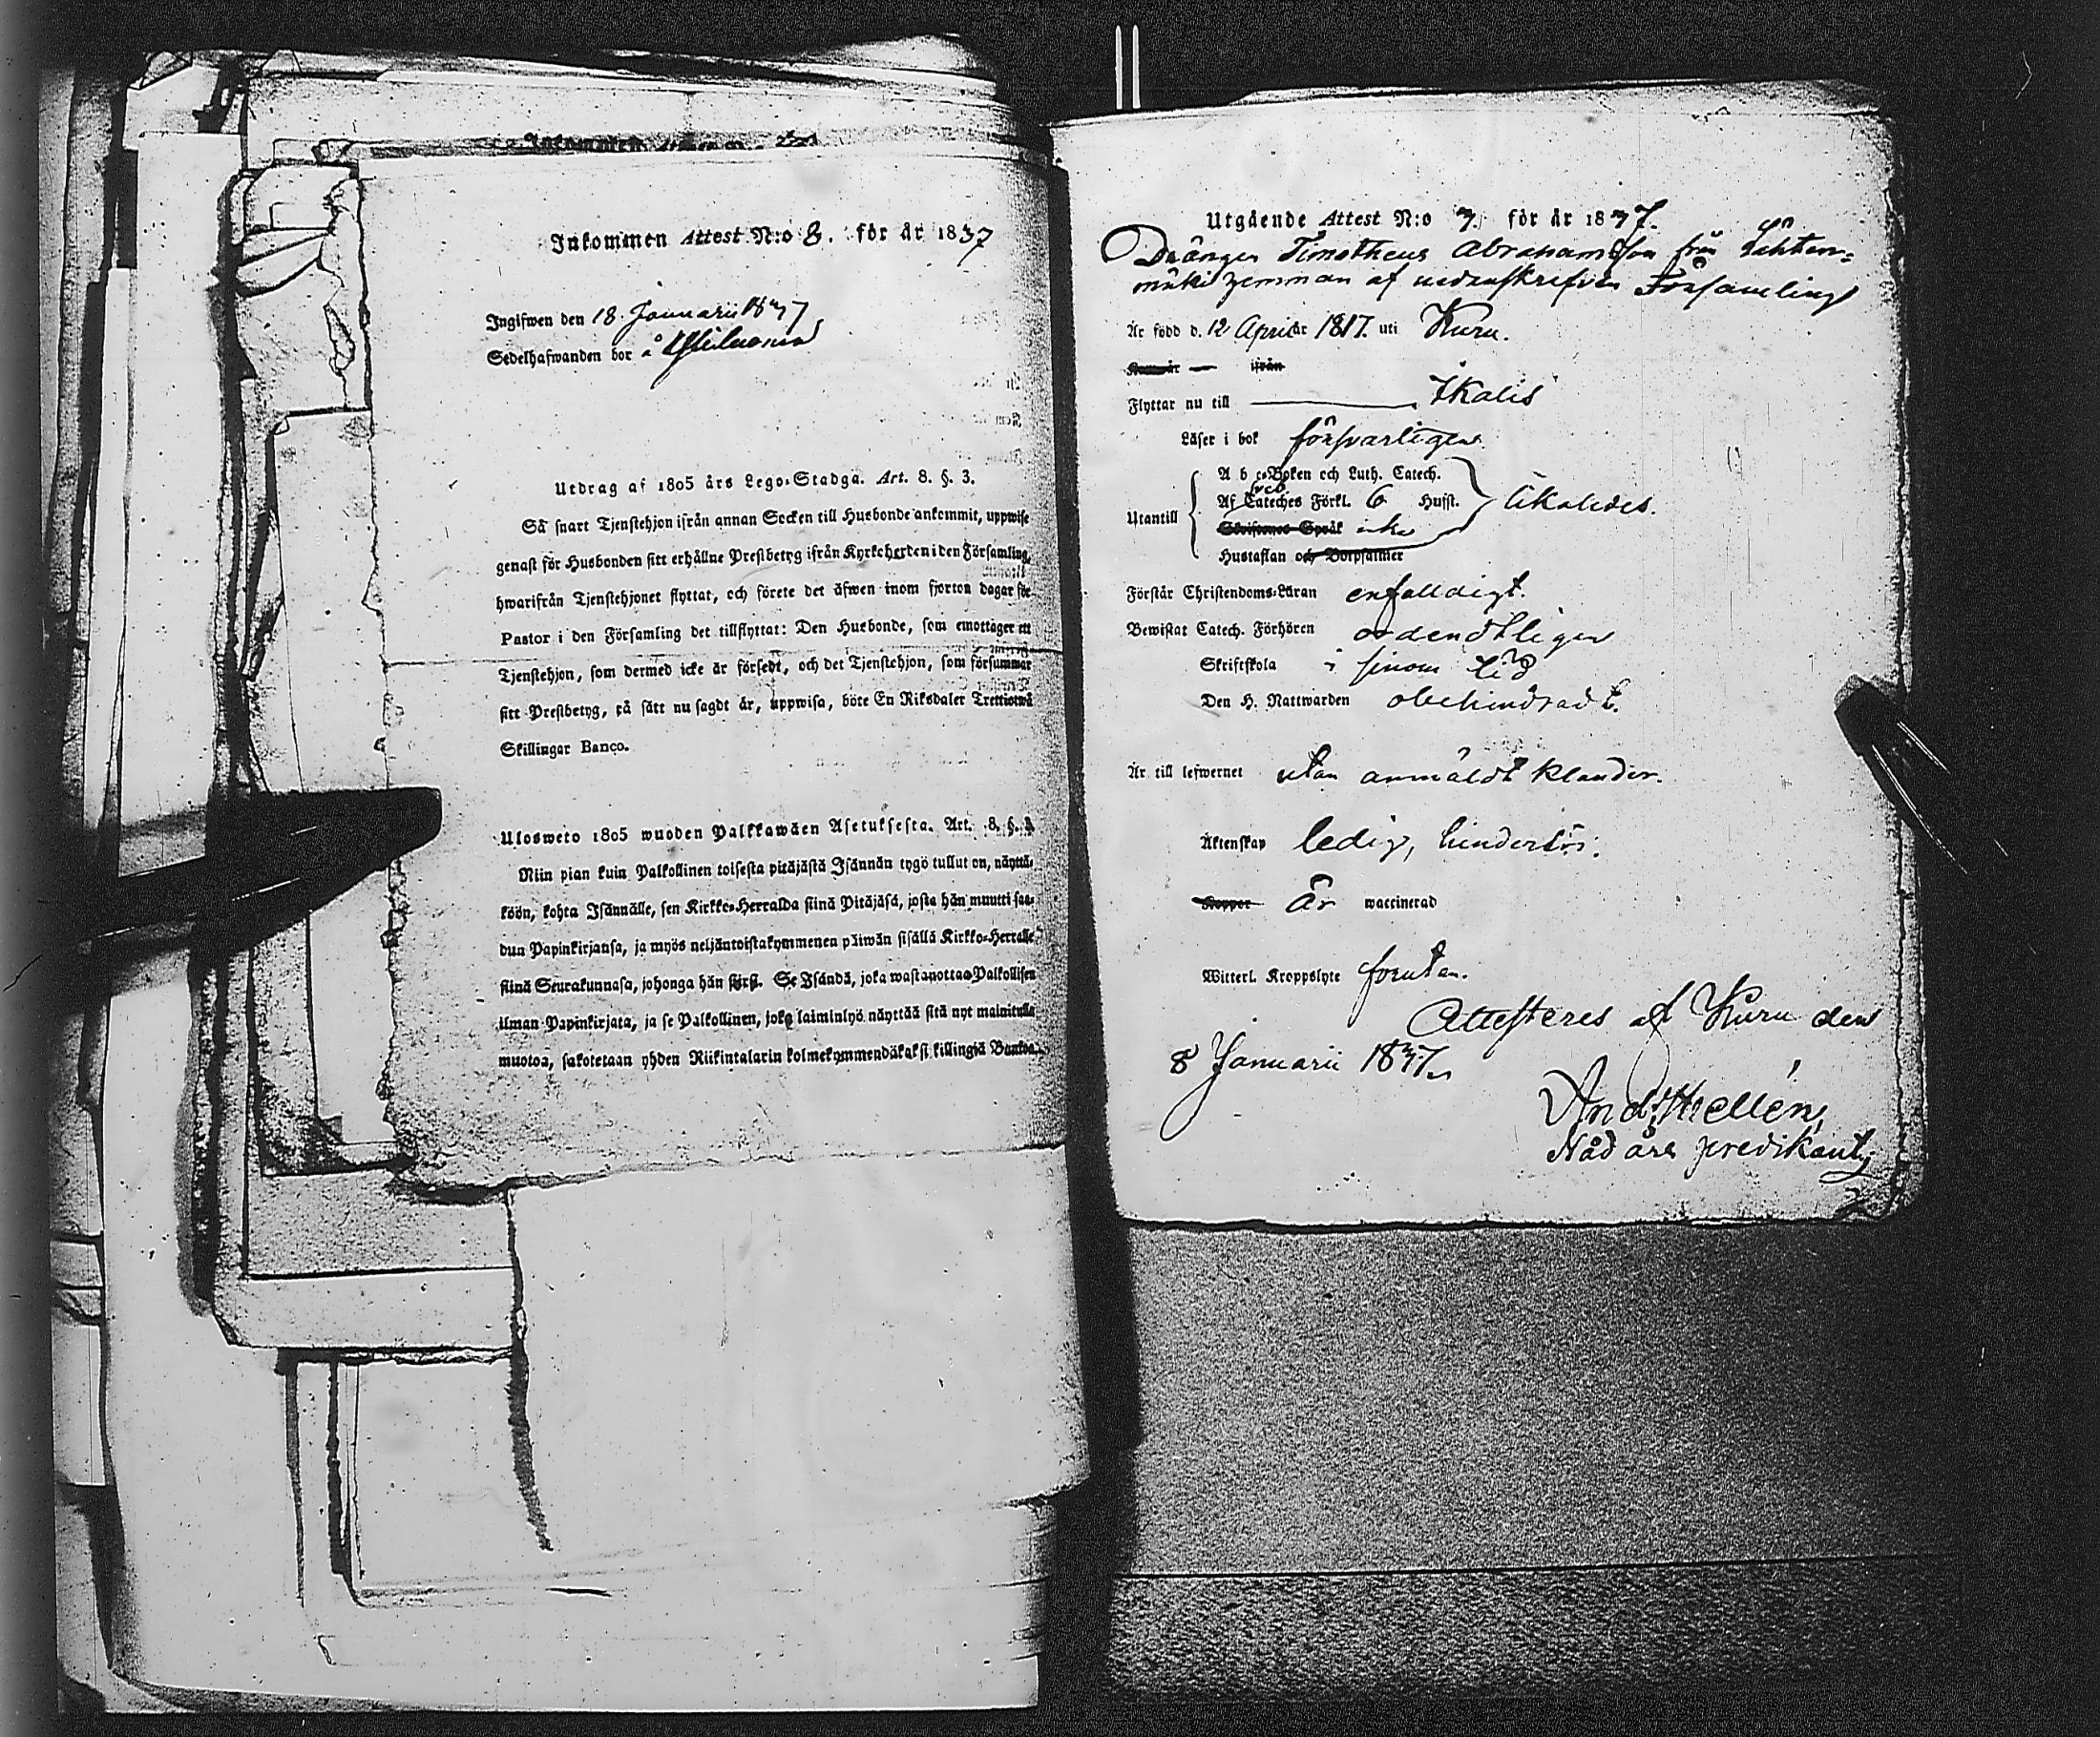 Inkommen Attest N:o 8. för år 1837
Ingifwen den 18. Januarii 1837
Sedelhafwanden bor å
Utdrag af 1805 års Lego-Stadga. Art. 8. §. 3.
Så snart Tjenstehjon ifrån annan Socken till Husbonde ankommit, uppwise
genast för Husbonden sitt erhållne Prestbetyg ifrån Kyrkoherden i den Församling,
hwarifrån Tjenstehjonet flyttat, och förete det äfwen inom fjorton dagar för
Pastor i den Församling det tillflyttat: Den Husbonde, som emottager ett
Tjenstehjon, som dermed icke är försedt, och det Tjenstehjon, som försummar
sitt Prestbetyg, på sätt nu sagdt är, uppwisa, böte En Riksdaler Trettiotwå
Skillingar Banco.
Ulosweto 1805 wuoden Palkkawäen Asetuksesta. Art. 8. §. 3.
Niin pian kuin Palkollinen toisesta pitäjästä Isännän tygö tullut on, näyttä-
köön, kohta Isännälle, sen Kirkko-Herralda siinä Pitäjäsä, josta hän muutti saa-
dun Papinkirjansa, ja myös neljäntoistakymmenen päiwän sisällä Kirkko-Herralle
siinä Seurakunnasa, johonga hän siirsi. Se Isändä, joka wastanottaa Palkollisen
ilman Papinkirjata, ja se Palkollinen, joka laiminlyö näyttää sitä nyt mainitulla
muotoa, sakotetaan yhden Riikintalarin kolmekymmendäkaksi killingiä Bankoa.
Utgående Attest N:o 7. för år 1837.
Drängen Timotheus Abrahamsson från Lähten-
mäki hemman af nedanskrefven Församling
Är född d. 12 April år 1817. uti Kuru.
år — ifrån
Flyttar nu till Ikalis
Läser i bok försvarligen
A b c-Boken och Luth. Catech.
Af Sveb. Cateches Förkl. 6 Hufst. likaledes.
Utantill
Skriftenes Språk icke
Hustaflan och Botpsalmer
Förstår Christendoms-Läran enfalldigt.
Bewistat Catech. Förhören ordendtligen
Skriftskola i sinom tid
Den H. Nattwarden obehindradt.
Är till lefwernet utan anmäldt klander.
Äktenskap ledig, hinderlös.
Koppor är waccinerad
Witterl. Kroppslyte forutan.
Attesteres af Kuru den
8 Januarii 1837.
And:
Nådårs predikant